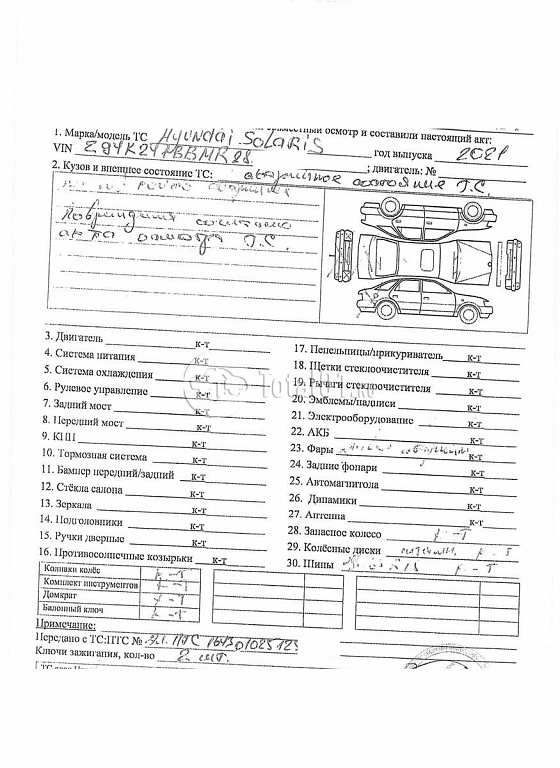 осмотр и составили настоящий акт:
1. Марка/модель ТС Hyundai SOLARIS
VIN год выпуска 2021
2. Кузов и внешнее состояние ТС: аварийное состояние Т.С. ; двигатель: №
Повреждения согласно
акта осмотра Т.С.
3. Двигатель к-т
4. Система питания к-т
5. Система охлаждения к-т
6. Рулевое управление к-т
7. Задний мост к-т
8. Передний мост к-т
9. КПП к-т
10. Тормозная система к-т
11. Бампер передний/задний к-т
12. Стёкла салона к-т
13. Зеркала к-т
14. Подголовники к-т
15. Ручки дверные к-т
16. Противосолнечные козырьки к-т
17. Пепельницы/прикуриватель к-т
18. Щетки стеклоочистителя к-т
19. Рычаги стеклоочистителя к-т
20. Эмблемы/надписи к-т
21. Электрооборудование к-т
22. АКБ к-т
23. Фары
24. Задние фонари
25. Автомагнитола к-т
26. Динамики к-т
27. Антенна к-т
28. Запасное колесо к-т
29. Колёсные диски к-т
30. Шины к-т
Колпаки колёс к-т
Комплект инструментов к-т
Домкрат к-т
Балонный ключ к-т
Примечание:
Передано с ТС:ПТС № Эл. ПТС 164301025123
Ключи зажигания, кол-во 2 шт.
Total01.ru